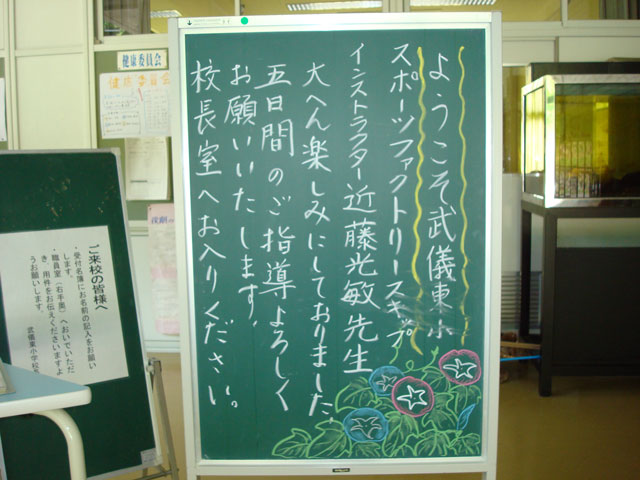 ようこそ武儀東小
スポーツファクトリースキップ
インストラクター近藤光敏先生
大へん楽しみにしておりました。
五日間のご指導よろしく
お願いいたします。
校長室へお入りください。
健康委員会
健康委員会
ご来校の皆様へ
・受付名簿にお名前の記入をお願い
します。
・職員室(右手奥)へおいでいただ
き、用件をお伝えくださいますよ
うお願いします。
武儀東小学校